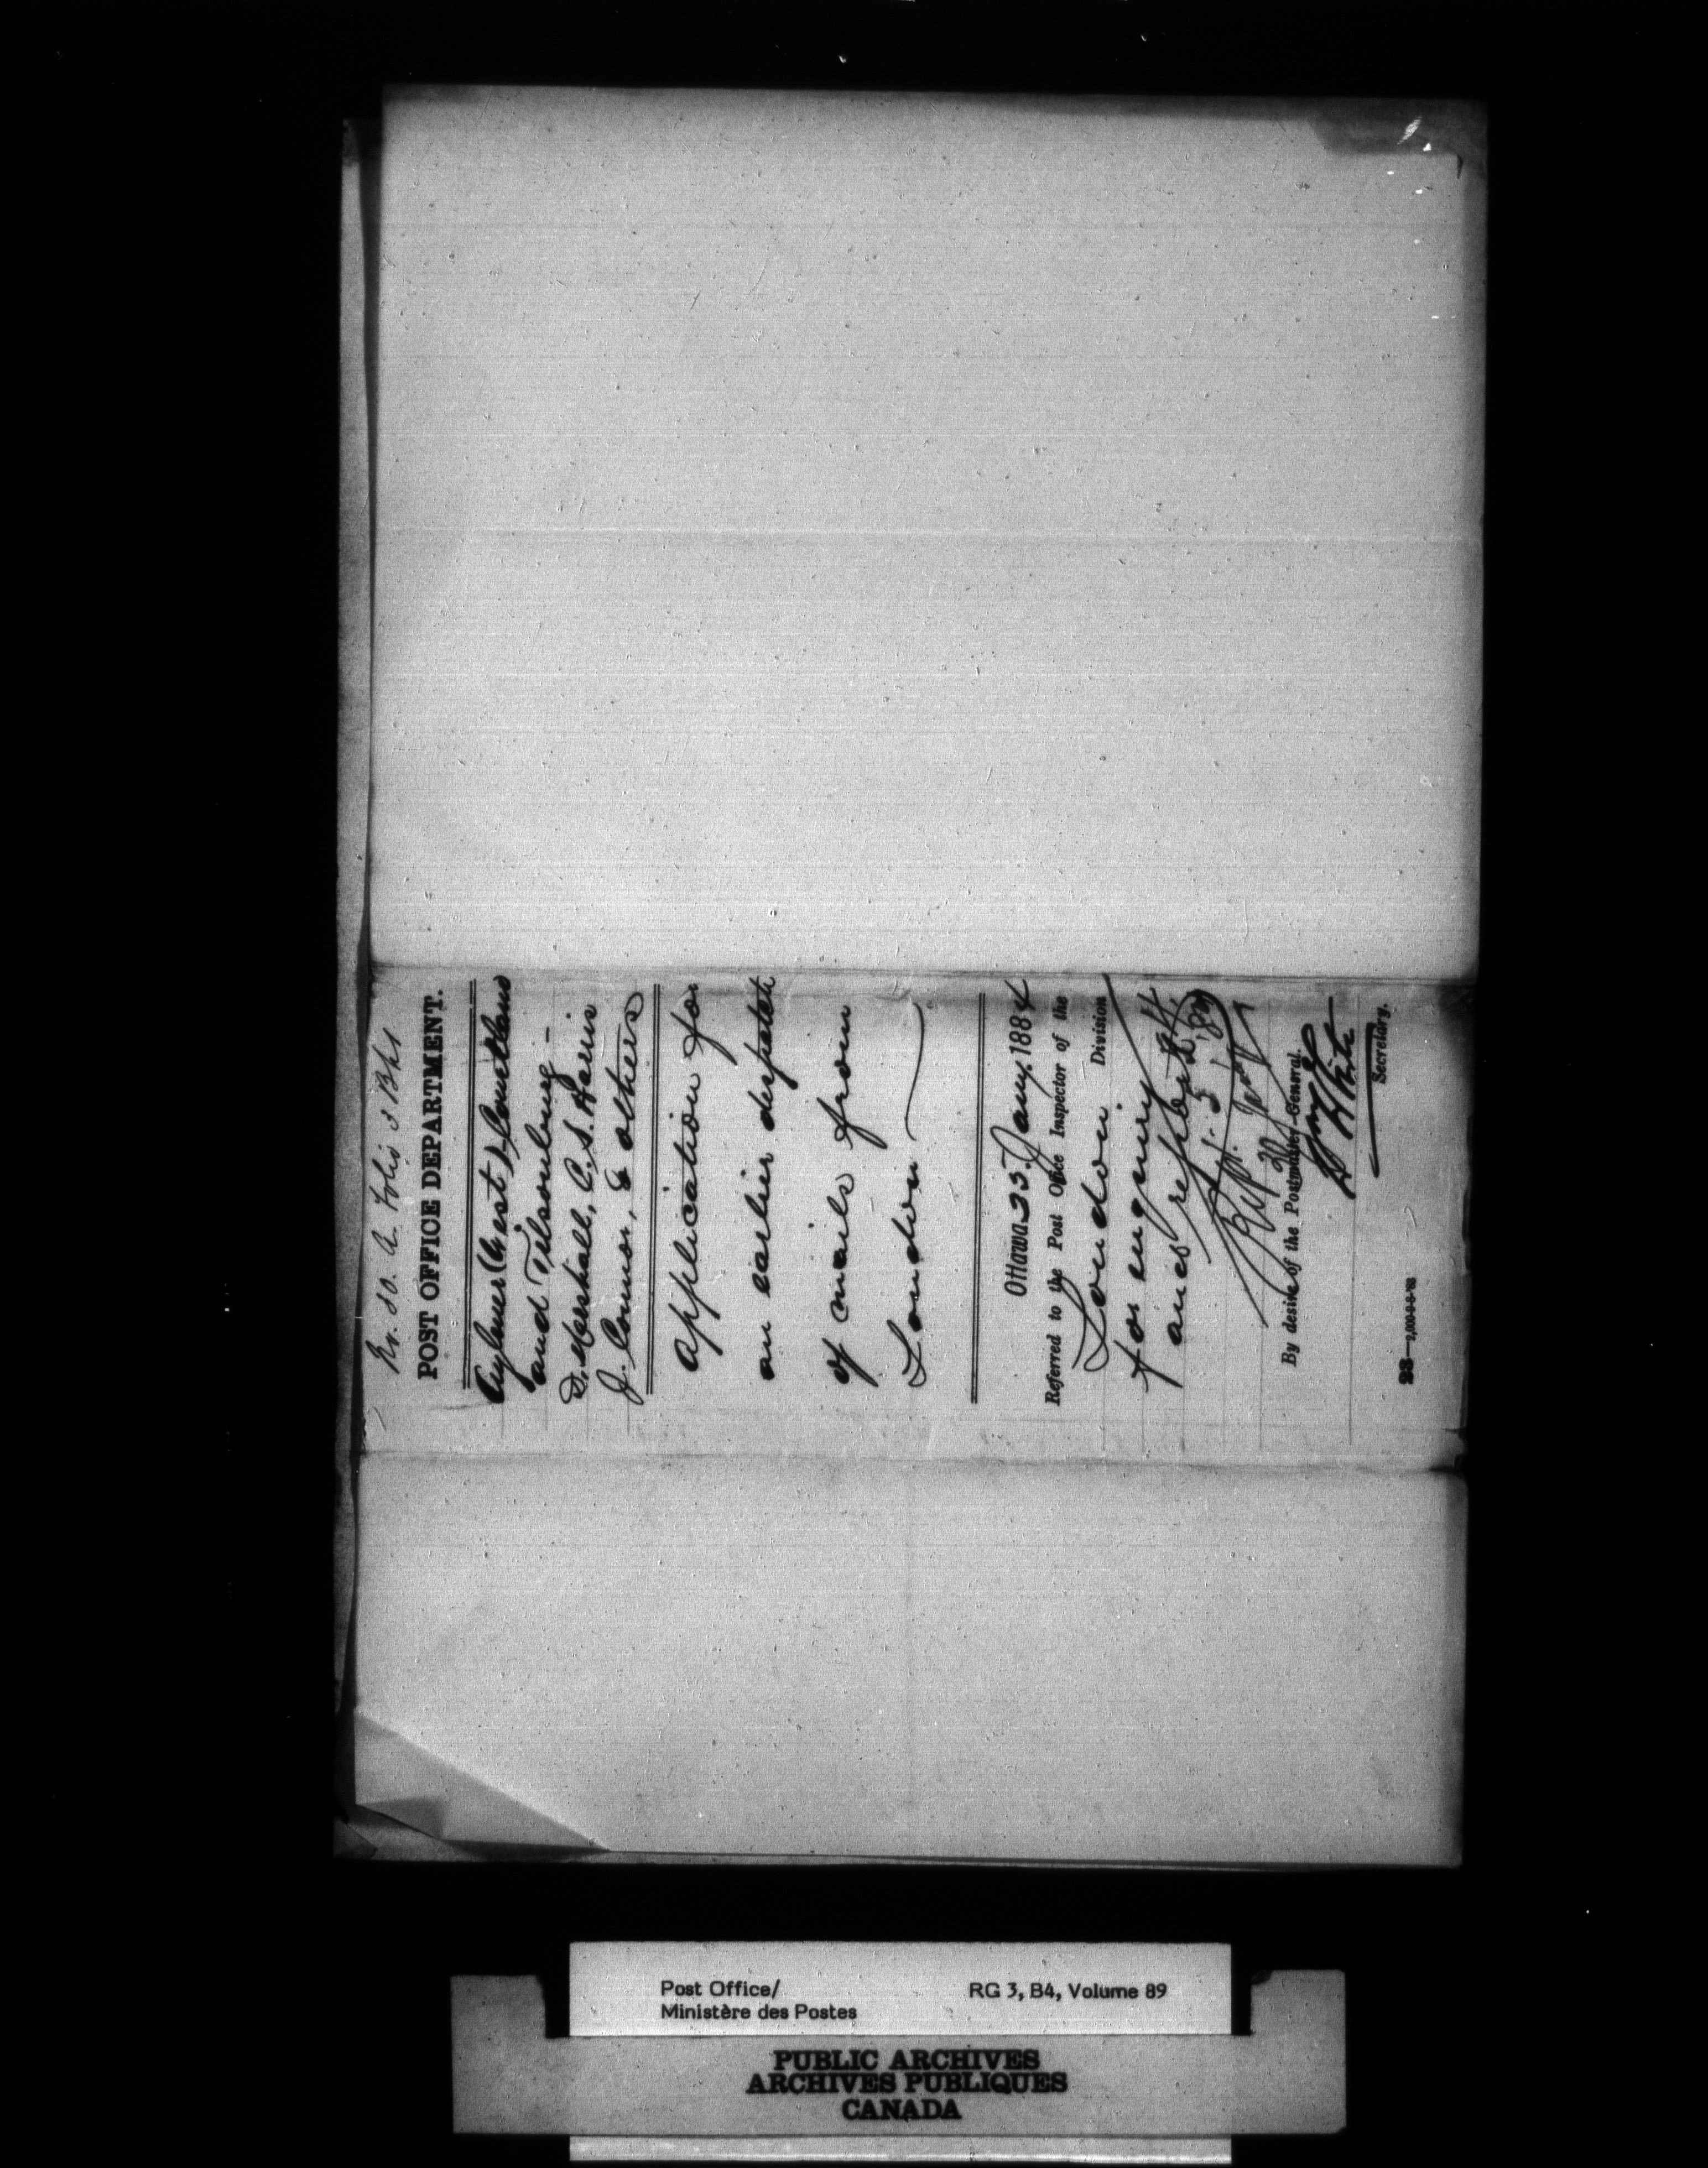 No. 80. A. Folio 3
POST OFFICE DEPARTMENT.
Aylmer (West), Courtland
and Tilsonburg -
D. Marshall, C. S. Harris
J. Connor, & others
Application for
an earlier despatch
of mails from
London
Ottawa 23 Jany. 1884
Referred to the Post Office Inspector of the
London Division
for enquiry
and report.
By desire of the Postmaster-General.
Secretary.
23—2,000-2-5-'83
Post Office/
Ministère des Postes
RG 3, B4, Volume 89
PUBLIC ARCHIVES
ARCHIVES PUBLIQUES
CANADA